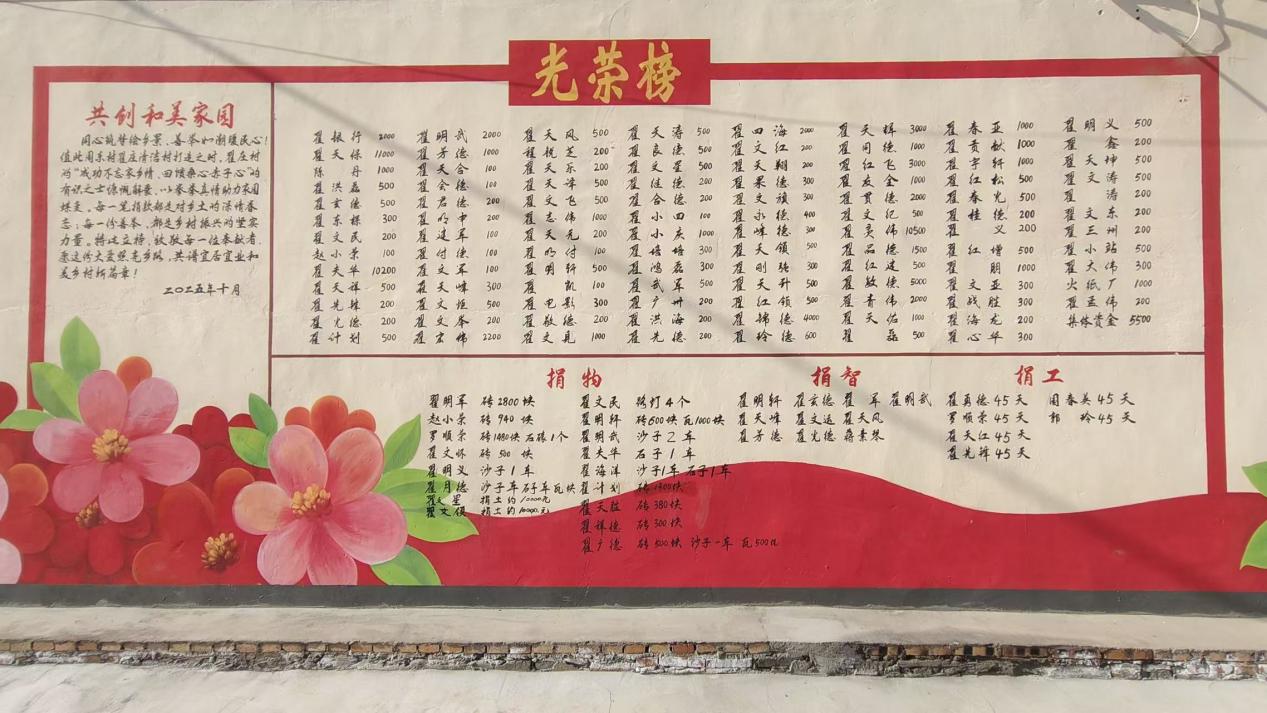 光荣榜
共创和美家园
同心筑梦绘乡景、善举如潮暖民心!
值此周东村翟庄清洁村打造之时,翟庄村
的“成功不忘家乡情,回馈桑心赤子心”的
有识之士慷慨解囊,以拳拳真情助力家园
蝶变。每一笔捐款都是对乡土的深情眷
恋;每一份善举,都是乡村振兴的坚实
力量。特此立榜,致敬每一位奉献者.
愿这份大爱照亮乡路,共谱宜居宜业和
美乡村新篇章!
二〇二五年十月
翟银行 2000
翟天保 11000
陈丹 1000
翟洪磊 500
翟玄德 500
翟东栋 300
翟文民 200
赵小荣 100
翟夫华 10200
翟天祥 500
翟先锋 200
翟光德 200
翟计划 500
翟明武 2000
翟芳德 1000
翟天合 100
翟会德 100
翟君德 200
翟明申 200
翟建军 100
翟付德 100
翟文军 100
翟天峰 300
翟文炬 500
翟文举 200
翟宏伟 2200
翟天风 500
程悦芝 200
翟天乐 200
翟天峰 500
翟文飞 500
翟志伟 1000
翟天元 200
翟明付 100
翟明轩 500
翟凯 100
翟电影 300
翟敬德 200
翟文见 1000
翟天涛 500
翟良德 500
翟文星 500
翟继德 200
翟合德 200
翟小四 100
翟小庆 1000
翟培培 300
翟鸿磊 300
翟武军 500
翟广州 200
翟洪海 200
翟元德 200
翟四海 200
翟文红 200
翟天翔 200
翟果德 300
翟文顽 300
翟永德 400
翟峰德 300
翟天领 500
翟刚强 300
翟天升 500
翟红领 500
翟锦德 4000
翟玲德 600
翟天辉 3000
翟同德 1000
翟红飞 3000
翟友全 1000
翟贯德 2000
翟文纪 500
翟奂伟 10500
翟品德 1500
翟红建 500
翟敏德 5000
翟青伟 2000
翟天佑 1000
翟磊 500
翟春亚 1000
翟贡献 1000
翟宇轩 1000
翟红松 500
翟春光 500
翟桂德 200
翟义 200
翟红增 500
翟朋 1000
翟文亚 300
翟战胜 300
翟海龙 200
翟心华 300
翟明义 500
翟鑫 200
翟天坤 500
翟文涛 500
翟涛 500
翟文东 200
翟三州 200
翟小站 500
翟大伟 300
火纸厂 1000
翟孟伟 200
集体资金 5500
捐物
翟明军 砖2800块
赵小荣 砖940块
罗顺荣 砖1480块 石磙1个
翟文怀 砖500块
翟明义 沙子1车
翟月德 沙子车石子车瓦块
翟文星 捐土约10000元
翟文俱 捐土约10000元
翟文民 路灯4个
翟明轩 砖600块 瓦1000块
翟明武 沙子2车
翟夫华 石子1车
翟海洋 沙子1车 石子1车
翟计划 砖1300块
翟天胜 砖380块
翟祥德 砖300块
翟广德 砖500块 沙子一车 瓦500块
捐智
翟明轩 翟玄德 翟军 翟明武
翟天峰 翟文运 翟天风
翟芳德 翟光德 蒋素琴
捐工
翟勇德 45天 闫春英 45天
罗顺荣 45天 郭玲 45天
翟天红 45天
翟先锋 45天